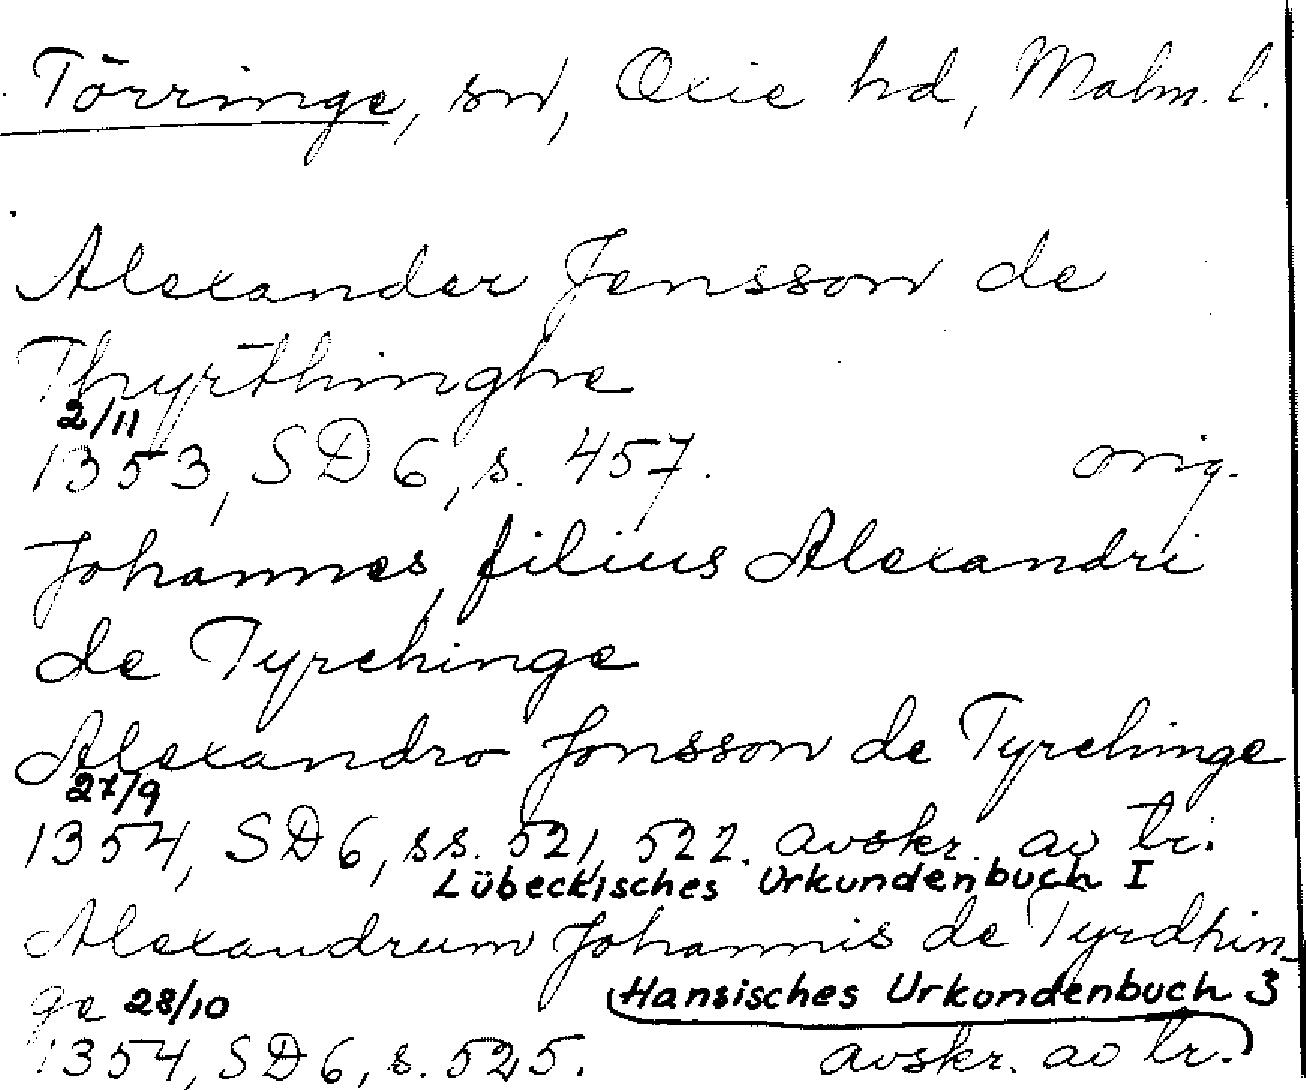 Törringe, sn, Oxie hd, Malm. l.
Alexander Jensson de
Thyrthinghe
2/11
1353, SD 6, s. 457. orig.
Johannes, filius Alexandri
de Tyrehinge
Alexandro Jonsson de Tyrehinge
27/9
1354, SD 6, ss. 521, 522. avskr. av tr.
Lübeckisches Urkundenbuch I
Alexandrum Johannis de Tyrdhin-
ge 28/10 Hansisches Urkundenbuch 3
1354, SD 6, s. 525. avskr. av tr.